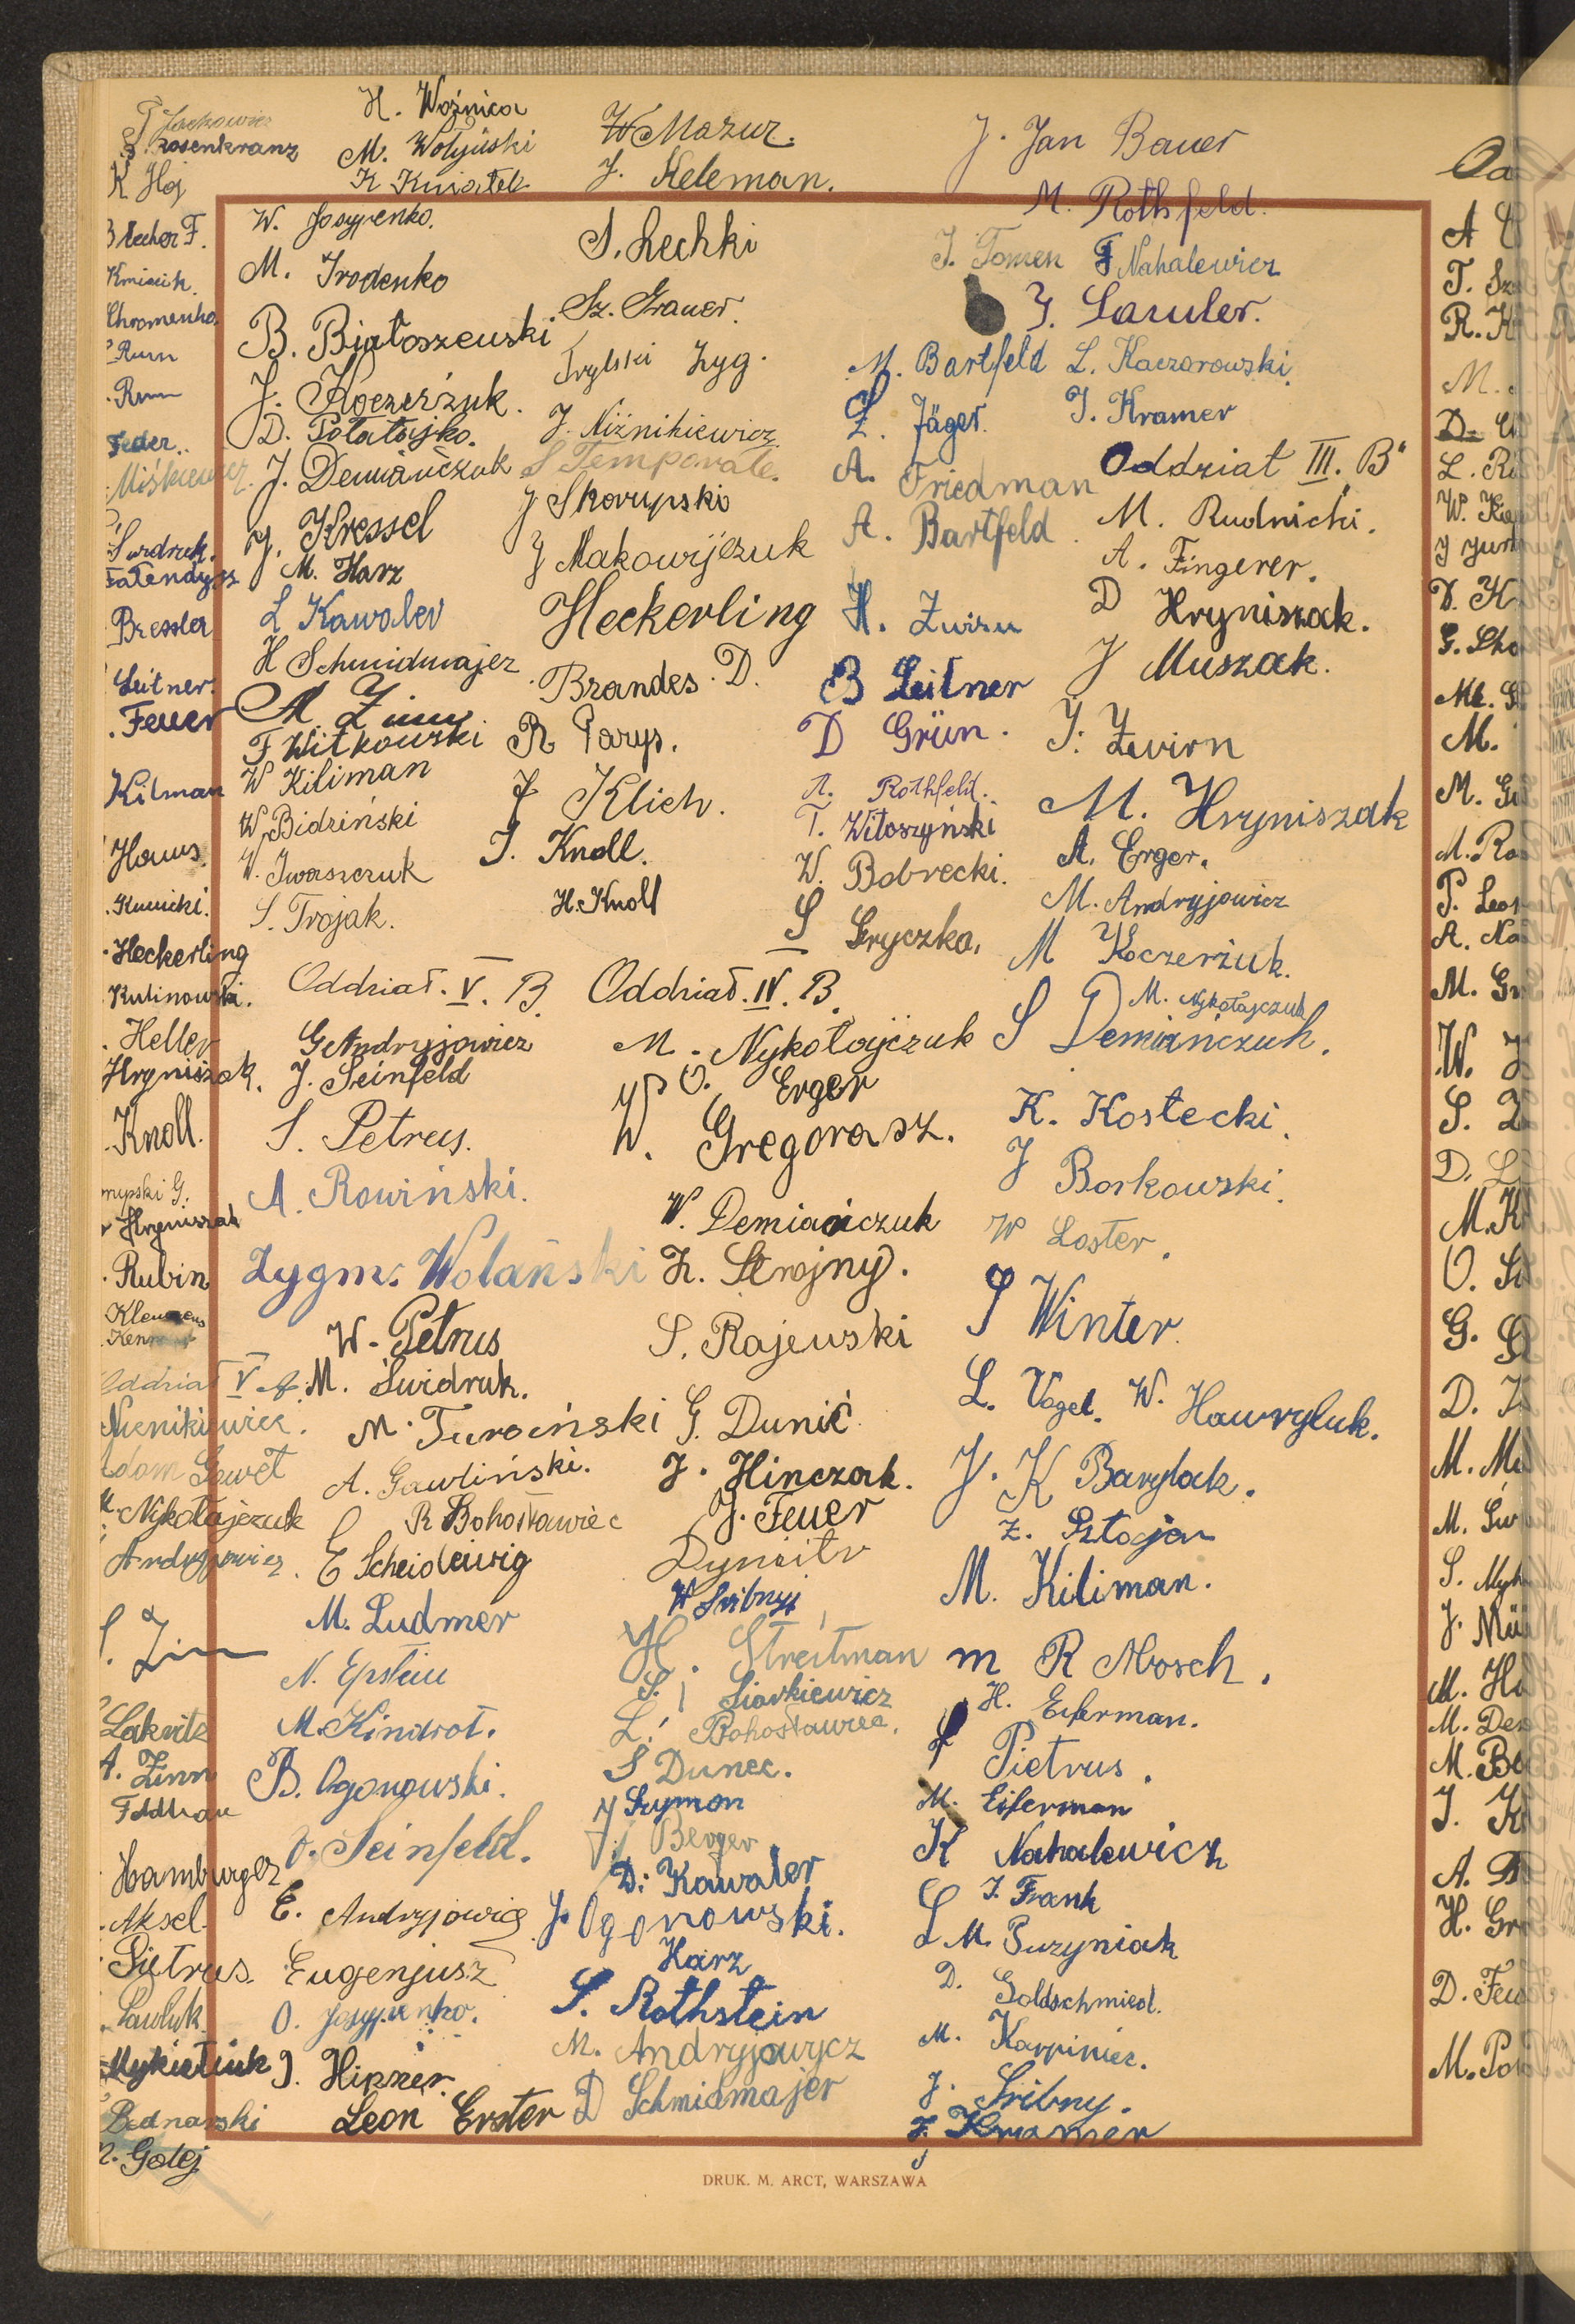 Jackowicz
S. Rosenkranz
K Hoj
Blecher F.
Kmiecik.
Chromenko.
Rurn
Feder..
Miśkiewicz.
Świdruk.
Fatendysz
Bressler
Leitner.
Feuer
Kilman
Haus.
Kunicki.
Heckerling
Kulinowski.
Heller
Hryniszak.
Knoll.
rupski G.
Hryniszak
Rubin
Klemens
Oddział V A.
Nienikiewicz.
Adam Gaweł
M. Nykołajczuk
Andryjowicz
Lakritz
A. Zinn
Feldhau
Hamburger
Aksel.
Pietrus.
Pawluk.
Mykietiuk
Bednarski
Gołej
H. Woźnica
M. Wołyński
K Kwiatek
W. Josypenko.
M. Irodenko
B. Białoszewski
J. Koczerżuk.
D. Połatajko.
J. Demiańczuk
J. Kressel
M. Harz
L Kawaler
H Schmidmajer
M Zinn
F Witkowski
W Kiliman
W. Bidziński
W. Iwaszczuk
S. Trojak.
Oddział. V. B.
G Andryjowicz
J. Seinfeld
S. Petrus.
A. Rowiński.
Zygm. Wolański
W. Petrus
M. Świdruk.
M. Turciński
A. Gawliński.
R Bohosławiec
E Scheidewig
M. Ludmer
N. Epstein
M. Kindrot.
B. Ogonowski.
J. Seinfeld.
E. Andryjowicz
Eugenjusz
O. Josypenko.
J. Hipner.
Leon Erster
W Mazur.
J. Keleman.
S. Lechki
Sz. Grauer.
Irylski Zyg.
J. Niżnikiewicz
S Temporale.
J Skorupski
J Makowijczuk
Heckerling
Brandes. D.
R Parys.
J Klich.
J. Knoll.
H. Knoll
Oddział. IV. B.
M. Nykołajczuk
O. Erger
W. Gregorasz.
W. Demiańczuk
Z. Strojny.
S. Rajewski
G. Dunić
J. Hinczak.
J. Feuer
Dymitr
W Sribnyj
H. Streitman
S. Siarkiewicz
L. Bohosławiec.
S Dunec.
J Szymon
J. Berger
D. Kawaler
J. Ogonowski.
Harz
S. Rothstein
M. Andryjowycz
D Schmidmajer
J. Jan Bauer
M. Rothfeld.
J. Tomen F Nahalewicz
J. Lauuler.
M. Bartfeld L. Kaczarowski.
L. Jäger. J. Kramer
A. Friedman
A. Bartfeld
H. Zwirn
B Leitner
D Grün.
A. Rothfeld.
T. Witoszyński
W. Bobrecki.
S Gryczka.
Oddział III. B"
M. Rudnicki.
A. Fingerer.
D Hryniszak.
J Muszak.
J. Zwirn
M. Hryniszak
A. Erger.
M. Andryjowicz
M Koczerżuk.
M. Nykołajczuk
S Demiańczuk.
K. Kostecki.
J Borkowski.
W Loster.
S Winter.
L. Vogel. W. Hawryluk.
J. K Barylak.
Z. Sztojan
M. Kiliman.
m R Mosch.
H. Eiferman.
S Pietrus.
M. Eiferman
K Nahalewicz
J. Frank
L M. Puzyniak
D. Goldschmied.
M. Karpiniec.
J. Sribny.
J. Kramer
A
T. Sz
R. K
M.
D.
L. Ri
W. Ki
J Jur
D. K
G. Sko
M.
M.
M. Ro
P. Leo
A. Na
M. Gr
W. J
S. Z
D. L
M. K
O. Se
G. S
D. J
M. Mi
M. Św
S. Myk
J. Mü
M. Ha
M. Dem
M. Be
J. K
A. B
H. Gr
D. Feu
M. Poł
DRUK. M. ARCT, WARSZAWA